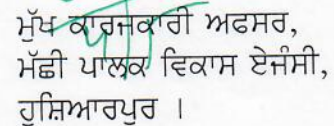 ਮੁੱਖ ਕਾਰਜਕਾਰੀ ਅਫਸਰ,
ਮੱਛੀ ਪਾਲਕ ਵਿਕਾਸ ਏਜੰਸੀ,
ਹੁਸ਼ਿਆਰਪੁਰ ।